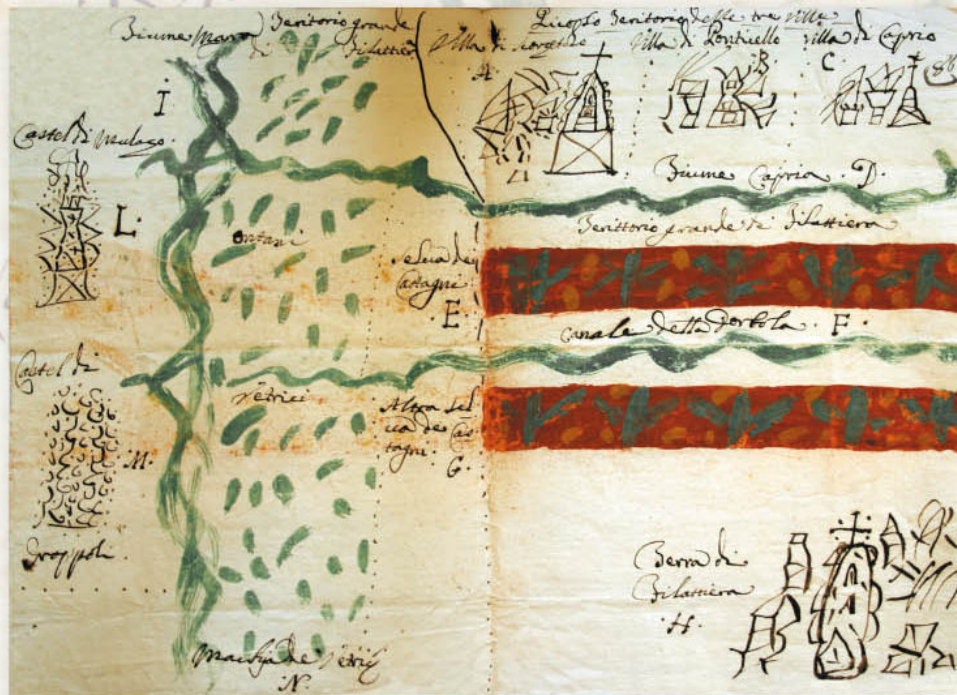 Fiume Magra
Territorio grande
di Filattiera
Picciolo Territorio delle tre ville
Villa di
Villa di Ponticello
Villa di Caprio
A
B
C
I
Castel di Mulazo.
L.
Fiume Capria . D.
Territorio grande di Filattiera
ontani
selva de
Castagni
E
canale detta Dorbola . F.
Castel di
M.
Groppoli
vetrici
Altra sel
va de Cas
tagni.
G.
Terra di
Filattiera
H.
Macchja de Vetrici
N.